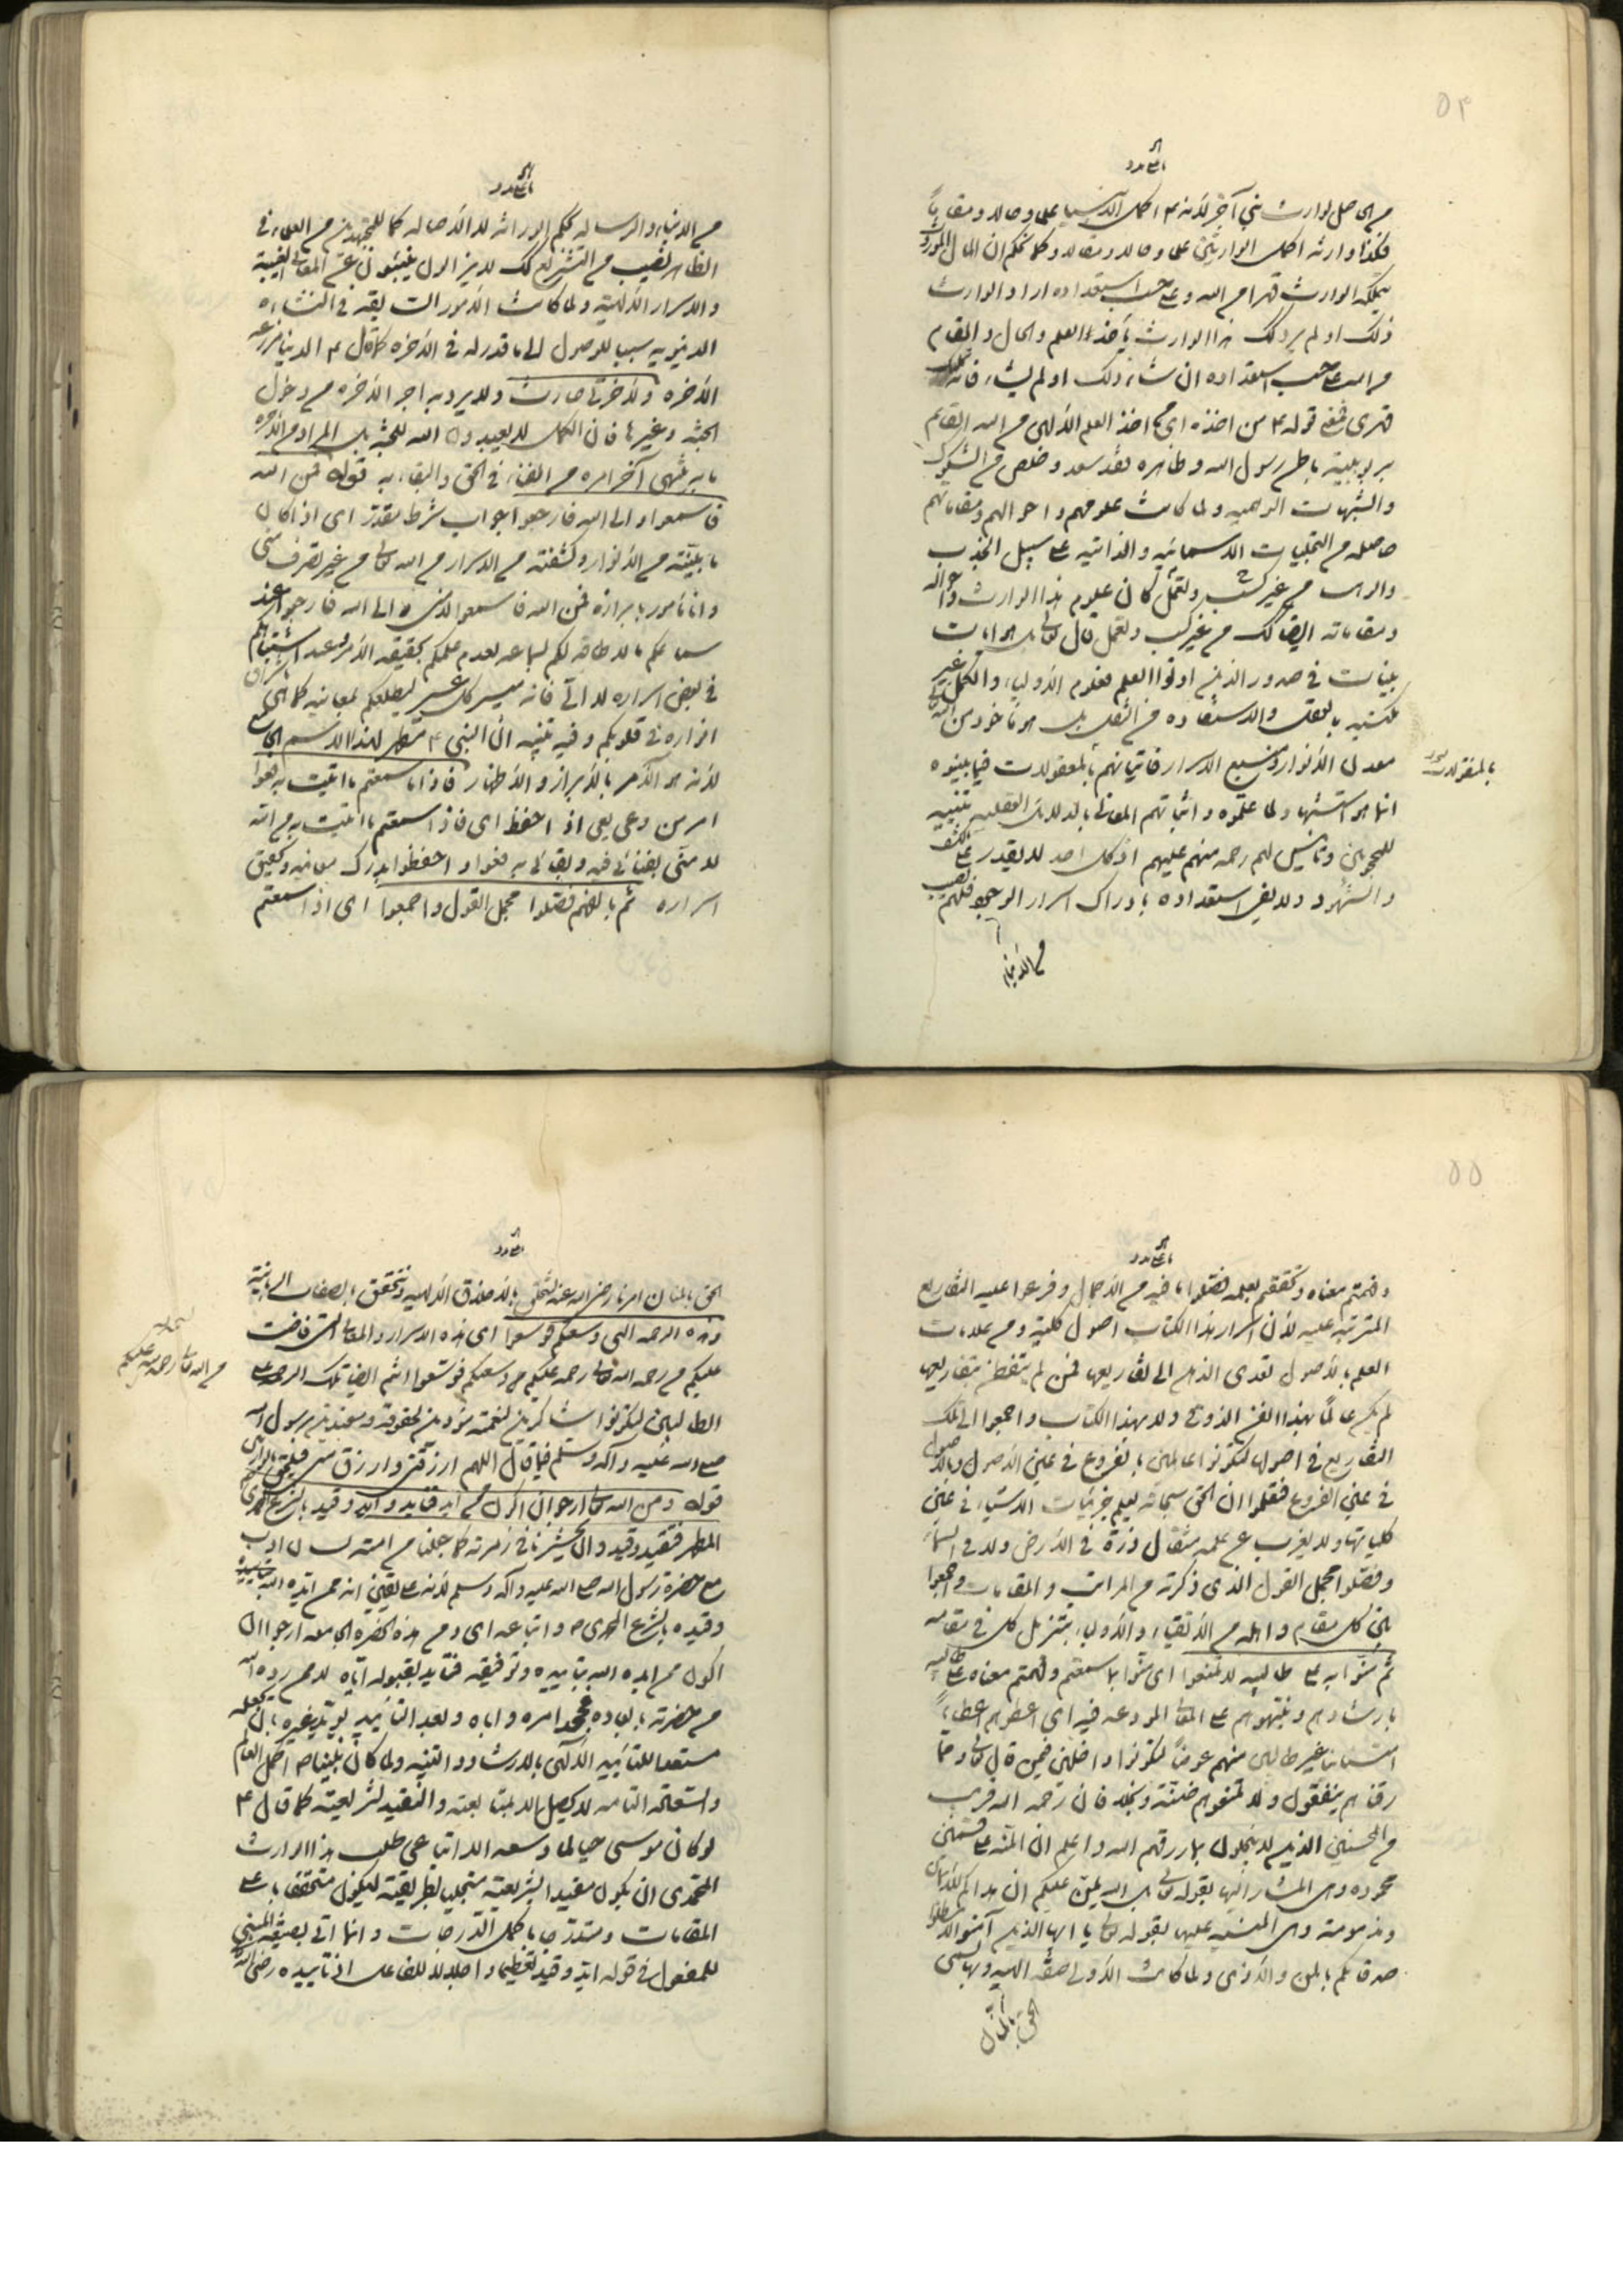 ٥٤
من الحاصل لوارث نبي آخر لأنه م اكمل الانبياء علما وحالا ومقاما
فكذا وارثه اكمل الوارثين علما وحالا ومقاما وكما نحكم ان المال الموروث
يتملكه الوارث قهرا من الله وعلى حسب استعداده اراد الوارث
ذلك او لم يرد كك هذا الوارث يأخذ العلم والحال والمقام
من الله على حسب استعداده ان شاء ذلك او لم يشاء فانه تملك
قهري فمعنى قوله م من اخذه اى من اخذ العلم الالهى من الله القائم
بربوبيته باطن رسول الله وظاهره فقد سعد وخلص من الشكوك
والشبهات الوهمية ولما كانت علومهم واحوالهم ومقاماتهم
حاصله من التجليات الاسمائيه والذاتيه على سبيل الجذب
والوهب من غير كسب وتعمل كان علوم هذا الوارث واحواله
ومقاماته ايضا كك من غير كسب وتعمل قال تعالى بل هو ايات
بينات في صدور الذين اوتوا العلم فعلوم الأولياء والكمل غير
مكتسبه بالعقل والاستفاده من النقل بل هو مأخوذ من الله
معدن الأنوار ومنبع الاسرار فاتيانهم بالمعقولات فيما بينوه
بالمنقولات
انما هو استشهاد لما علموه واثباتهم المعانى بالدلايل العقليه تنبيه
للمحجوبين وتانيس لهم رحمه منهم عليهم اذ كل احد لا يقدر على الكشف
والشهود ولا يفى استعداده بادراك اسرار الوجود فلهم نصيب
من الأنبياء
من الانبياء والرساله بحكم الوراثه لا الأصاله كما للمجتهدين من العلماء في
الظاهر نصيب من التشريع كك لا يزالون ينبئون عن المعانى الغيبية
والاسرار الألهية ولما كانت الأمور السابقه في النشاءه
الدنيويه سببا للوصول الى ما قدر له في الأخره كما قال م الدنيا مزرعه
الأخره ولأخرتى صارت ولا يريد به اجر الأخره من دخول
الجنه وغيرها فان الكمل لا يعبدون الله للجنه بل المراد من الأخره
ما ينتهى آخر امره من الفناء في الحق والبقاء به قوله فمن الله
فاسمعوا والى الله فارجعوا جواب شرط مقدر اى اذا كان
ما بينته من الأنوار وكشفته من الاسرار من الله تعالى من غير تصرف منى
وانا مأمور بابرازه فمن الله فاسمعوا لا منى والى الله فارجعوا عند
سماعكم مالا طاقه لكم لسماعه لعدم علمكم بحقيقه الأمر وعند اشتباهكم
في بعض اسراره لا الىّ فانه ميسر كل عسير ليطلعكم لمعانيه كما هى
باشراق
انواره في قلوبكم وفيه تنبيه الى ان النبى م مظهر لهذا الاسم الجامع
لأنه هو الأمر بالأبراز والأظهار فاذا ما سمعتم ما اتيت به فعوا
امر من وعى يعى اذا حفظ اى فاذا سمعتم ما اتيت به من الله
لا منى بفنائى فيه وبقائى به فعوا واحفظوا بدرك معانيه وكيفية
اسراره ثم بالفهم فصلوا مجمل القول واجمعوا اى اذا سمعتم
٥٥
وفهمتم معناه وتحققتم بعلمه فصلوا ما فيه من الأجمال وفرعوا عليه التفاريع
المترتبه عليه لأن اسرار هذا الكتاب اصول كليّة ومن علامات
العلم بالأصول تعدى الذهن الى تفاريعها فمن لم يتفطن بتفاريعها
لم يكن عالما بهذا الفن الذوقى ولا بهذا الكتاب واجمعوا الى تلك
التفاريع في اصولها لتكونوا عالمين بالفروع في عين الأصول وبالأصول
في عين الفروع فتعلموا ان الحق سبحانه يعلم جزئيات الاشياء في عين
كلياتها ولا يعزب عن علمه مثقال ذرة في الأرض ولا في السماء
وفصلوا مجمل القول الذى ذكرته من المراتب والمقامات واجمعوا
بين كل مقام واهله من الأتقياء والأولياء بتنزيل كل في مقامه
ثم منّوا به على طالبيه لا تمنعوا اى منّوا بما سمعتم وفهمتم معناه على طالبيه
بارشادهم وتنبيههم على المعانى المودعه فيه اى اعطوهم اعطاءً
امتنانا غير طالبين منهم عوضا لتكونوا داخلين فيمن قال تعالى ومما
رزقناهم ينفقون ولا تمنعوهم ضنّة وبخلا فان رحمه الله قريب
من المحسنين الذين لا يبخلون بما رزقهم الله واعلم ان المنه على قسمين
محموده وهى المشار اليها بقوله تعالى بل الله يمن عليكم ان هداكم للأيمان
ومذمومة وهى المنبه عليها بقوله تعالى يا ايها الذين آمنوا لا تبطلوا
صدقاتكم بالمن والأذى ولما كانت الأولى صفة الهيه وبها يسمى
الحق بالمنان
الحق بالمنان امرنا رضى الله عنه لنتخلق بالأخلاق الألهيه ونتحقق بالصفات الربانيّة
وهذه الرحمه التى وسعتكم فوسعوا اى هذه الاسرار والمعانى التى فاضت
عليكم من رحمه الله تعالى رحمه عليكم وسعتكم فوسعوا انتم ايضا تلك الرحمه على
من الله تعالى رحمه منه عليكم
الطالبين لتكونوا شاكرين لنعمته مؤدين لحقوقه ومقتدين برسول الله
صلى الله عليه وآله وسلم فيما قال اللهم ارزقنى وارزق منى
قوله ومن الله تعالى ارجو ان اكون ممن ايد فتايد وايد وقيد بالشرع المحمدى
المطهر فتقيد وقيد وان يحشرنا في زمرته كما جعلنا من امته لسان ادب
مع حضرة رسول الله صلى الله عليه وآله وسلم لأنه على يقين انه ممن ايده الله بتاييده
وقيده بالشرع المحمدى م واتباعه اى ومن هذه الحضره الجامعه ارجو ان
اكون ممن ايده الله بتاييده وتوفيقه فتايد بقبوله اياه لا ممن رده الله
من حضرته بابعاده امره واباه وبعد التأييد يؤيد غيره بان يجعله
مستعدا للتأييد الألهى بالارشاد والتنبيه ولما كان نبينا م اكمل العالم
واستحقاقه التامه لا يحصل الا بمتابعته والتقيد لشريعته كما قال م
لو كان موسى حيا لما وسعه الا اتباعى طلب هذا الوارث
المحمدى ان يكون مقيدا بشريعته متجليا بطريقته ليكون متحققا باعلى
المقامات ومتدرجا باكمل الدرجات وانما اتى بصيغه المبنى
للمفعول في قوله ايد وقيد تعظيما واجلالا للفاعل اذ تاييده رضى الله